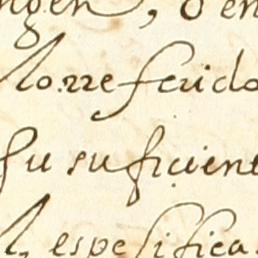 ngen, o en
lo rreferido
su suficient
l, espesifica